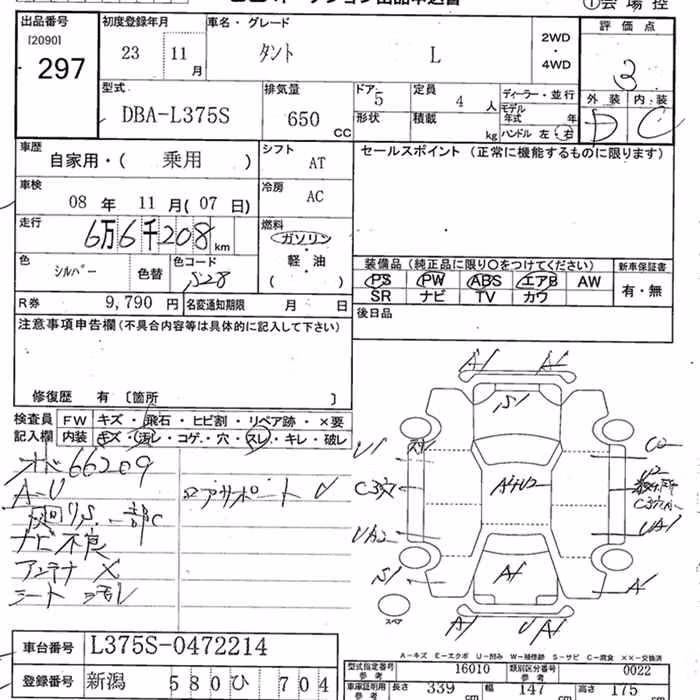 出品番号
[2090]
297
初度登録年月
23 11月
車名・グレード
タント L
2WD
・
4WD
評価点
3
外装 内装
D C
型式
DBA-L375S
排気量
650 CC
ドア
5
形状
定員
4 人
積載
kg
ディーラー・並行
モデル年式 年
ハンドル 左・右
車歴
自家用・( 乗用 )
シフト
AT
車検
08 年 11 月(07 日)
冷房
AC
走行
6万6千208 km
燃料
ガソリン
・
軽・油
( )
色
シルバー
色替
色コード
S28
R券
9,790 円
名変通知期限 月 日
セールスポイント (正常に機能するものに限ります)
装備品 (純正品に限り○をつけてください)
PS PW ABS エアB AW
SR ナビ TV カワ
新車保証書
有・無
後日品
注意事項申告欄 (不具合内容等は具体的に記入して下さい)
修復歴 有 〔箇所 〕
検査員記入欄
FW キズ・飛石・ヒビ割・リペア跡・×要
内装 キズ・汚レ・コゲ・穴・スレ・キレ・破レ
66209
A-U
ナビ不良
アンテナ X
シート 汚レ
ロアサポート U
A1 A1
S1
U1
C3穴
UA2
S1
A4U2
A1
U2
C3穴
UA1
A1
A1 UA1
スペア
A-キズ E-エクボ U-凹み W-補修跡 S-サビ C-腐食 ××-交換済
車台番号
L375S-0472214
登録番号
新潟 580 ひ 704
型式指定番号
参考
16010
類別区分番号
参考
0022
車庫証明用
参考
長さ 339 cm
幅 147 cm
高さ 175 cm